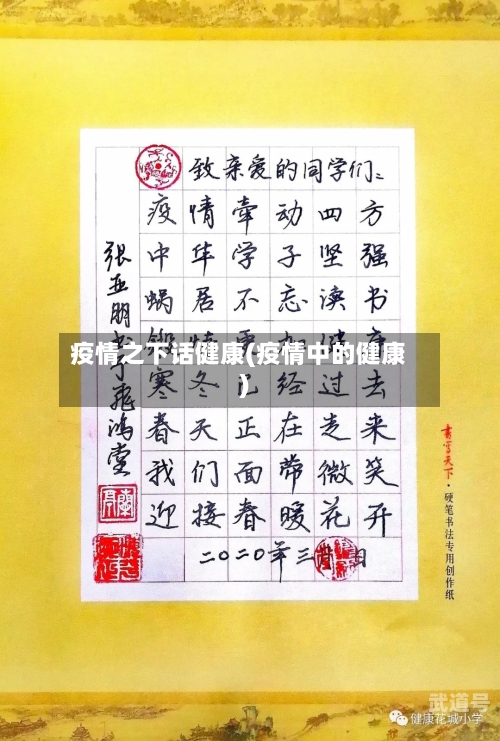 致亲爱的同学们:
疫情牵动四方
中华学子坚强
蜗居不忘读书
寒冬已经过去
春天正在走来
我们面带微笑
迎接春暖花开
二〇二〇年三月 日
张亚朋书于飛鸿堂
疫情之下话健康(疫情中的健康
)
书写天下·硬笔书法专用创作纸
武道号
健康花城小学